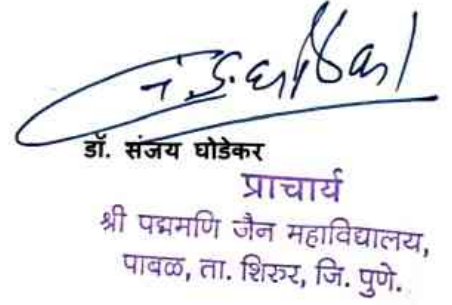 डॉ. संजय घोडेकर
प्राचार्य
श्री पद्ममणि जैन महाविद्यालय,
पाबळ, ता. शिरुर, जि. पुणे.